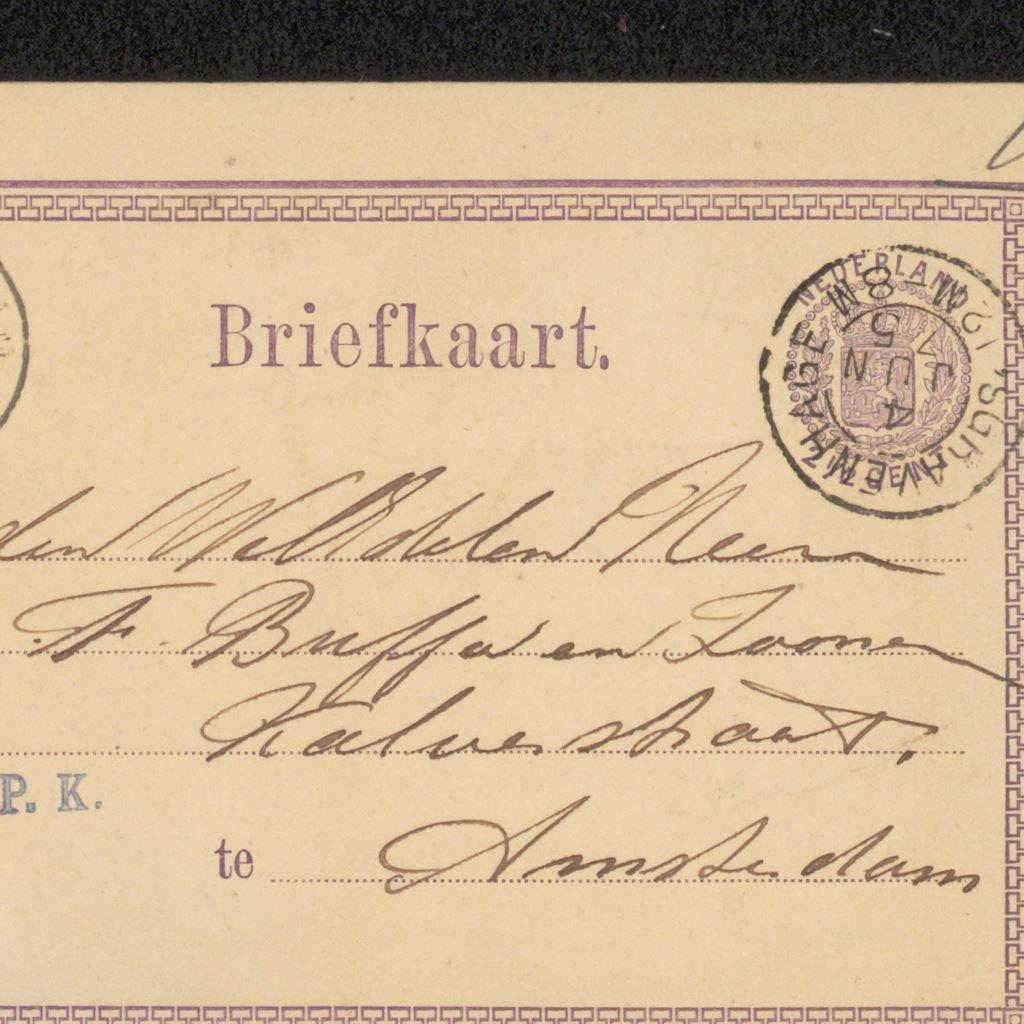 Briefkaart.
NEDERLAND
'SGRAVENHAGE
4
JUN
5
8M
12M
2½ CENT
den WelEdelen Heeren
F. Buffa en Zoonen
Kalverstraat.
P. K.
te Amsterdam